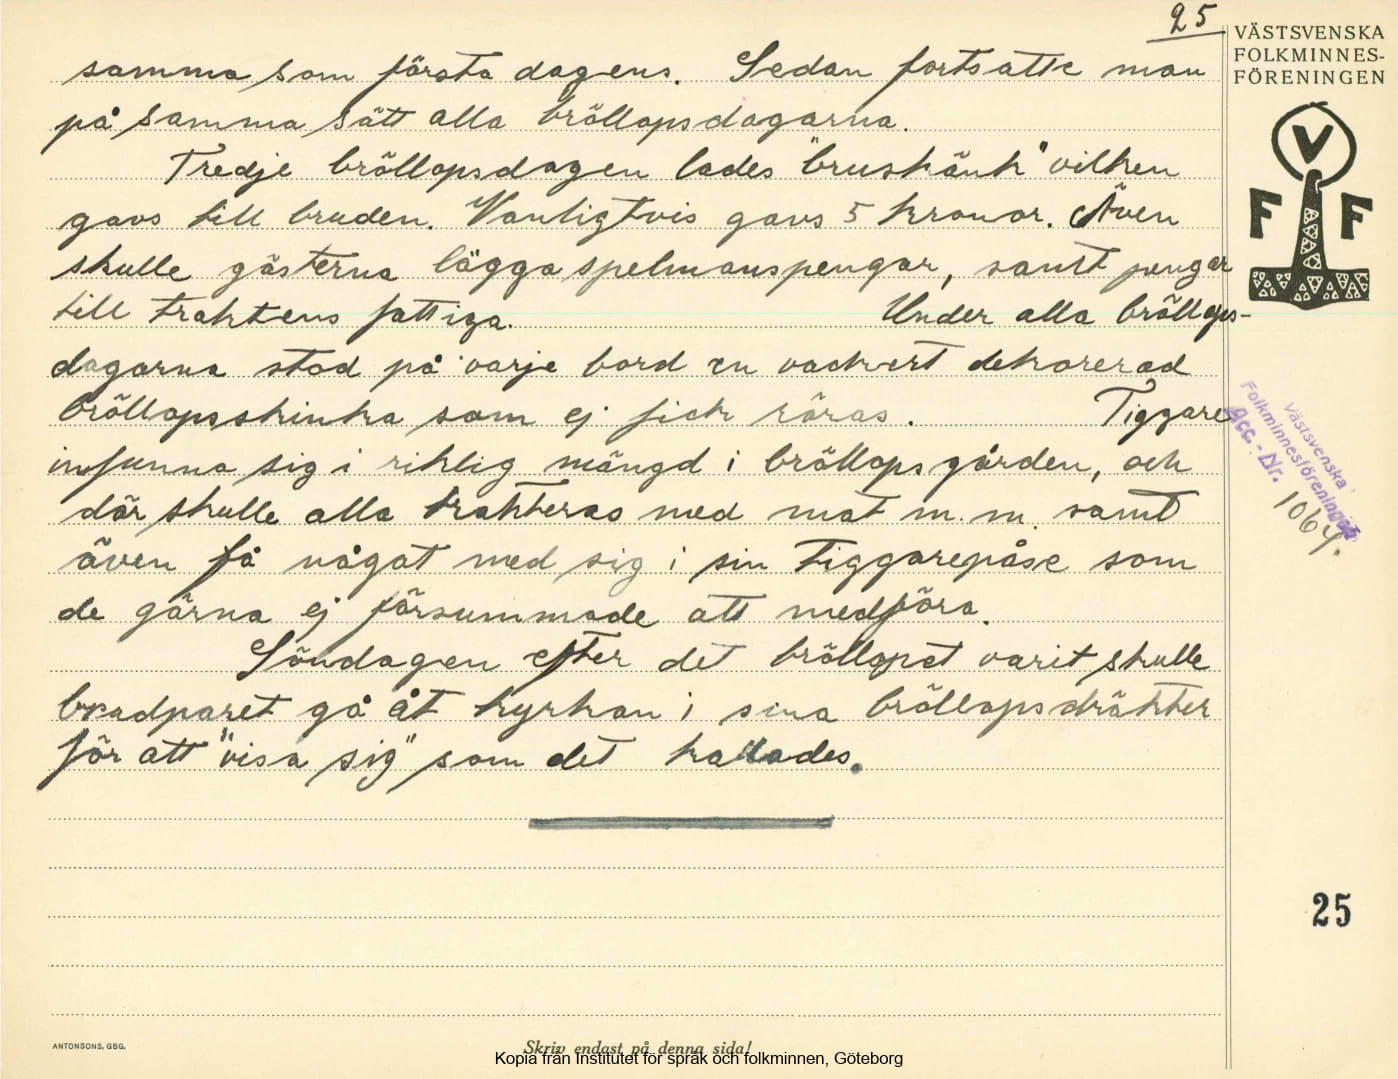 25
VÄSTSVENSKA
FOLKMINNES-
FÖRENINGEN
V
F F
samma som första dagens. Sedan fortsatte man
på samma sätt alla bröllopsdagarna.
Tredje bröllopsdagen lades "bruskänk" vilken
gavs till bruden. Vanligtvis gavs 5 kronor. Även
skulle gästerna lägga spelmanspengar, samt pengar
till traktens fattiga. Under alla bröllops-
dagarna stod på varje bord en vackert dekorerad
bröllopsskinka som ej fick röras. Tiggare
infunna sig i riklig mängd i bröllopsgården, och
där skulle alla trakteras med mat m.m. samt
även få något med sig i sin tiggarepåse som
de gärna ej försummade att medföra.
Söndagen efter det bröllopet varit skulle
brudparet gå åt kyrkan i sina bröllopsdräkter
för att "visa sig" som det kallades.
Västsvenska
Folkminnesföreningen
Acc.-Nr.
1064.
25
ANTONSONS, GBG.
Skriv endast på denna sida!
Kopia från Institutet för språk och folkminnen, Göteborg